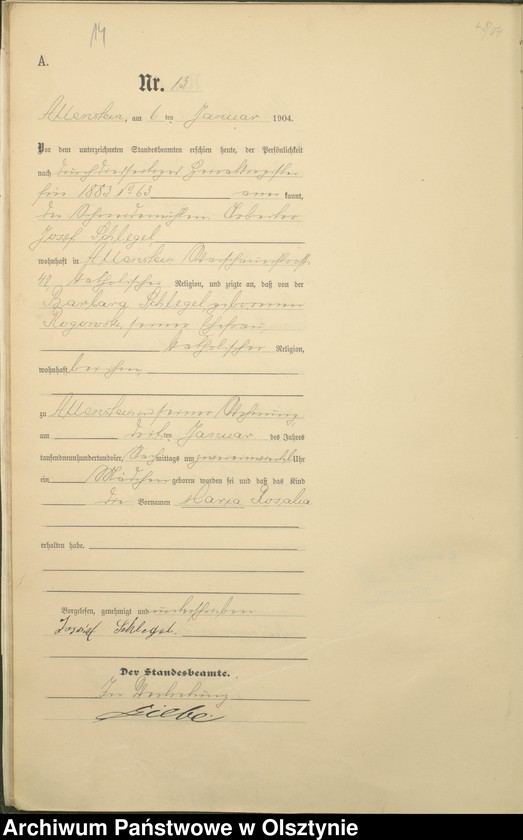 14
A.
Nr. 13
Allenstein, am 6 ten Januar 1904.
Vor dem unterzeichneten Standesbeamten erschien heute, der Persönlichkeit
nach durch
für 1883 No 63 aner kannt,
der Arbeiter
Josef Schlegel,
wohnhaft in Allenstein
katholischer Religion, und zeigte an, daß von der
Barbara Schlegel geborenen
seiner Ehefrau,
katholischer Religion,
wohnhaft bei ihm,
zu Allenstein in seiner Wohnung
am dritten Januar des Jahres
tausendneunhundertundvier, Nachmittags um Uhr
ein Mädchen geboren worden sei und daß das Kind
die Vornamen Maria Rosalia
erhalten habe.
Vorgelesen, genehmigt und unterschrieben
Josef Schlegel.
Der Standesbeamte.
In Vertretung
Archiwum Państwowe w Olsztynie